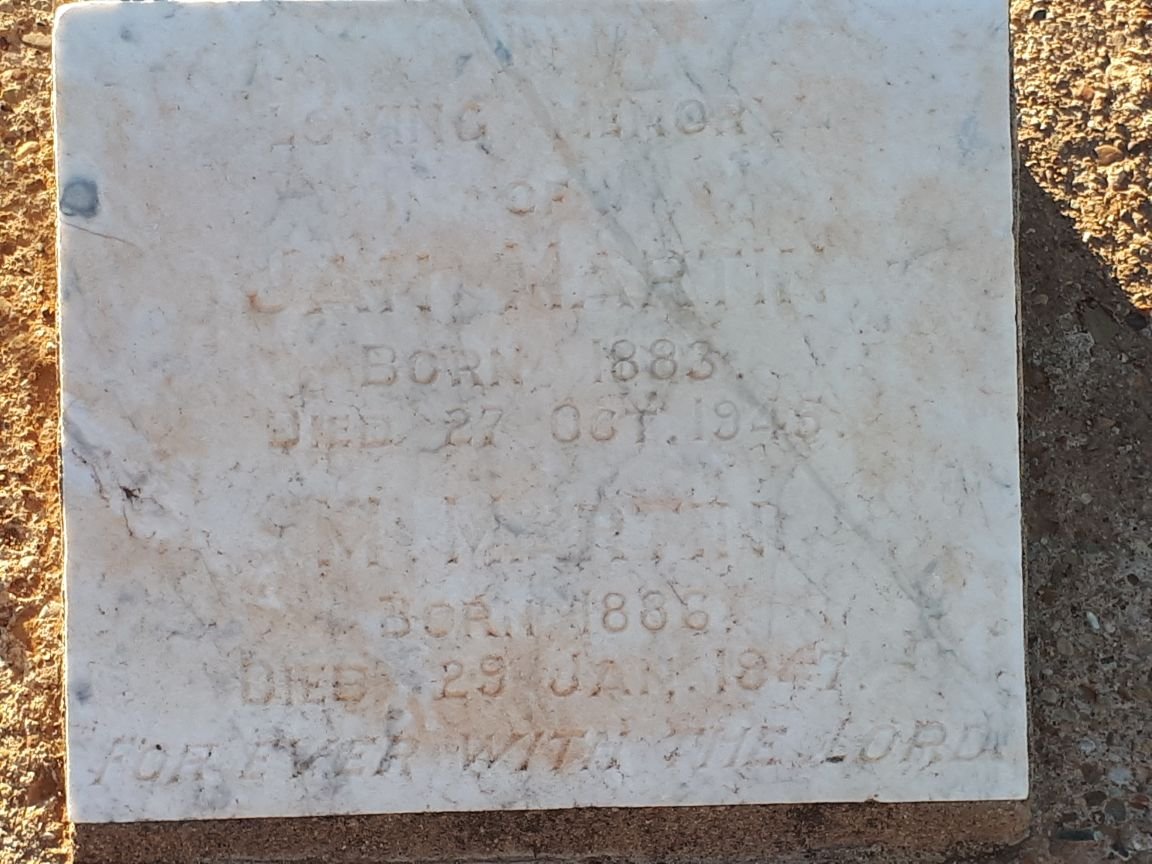 IN
LOVING MEMORY
OF
MARTIN
BORN 1883.
DIED 27 OCT. 1945.
M. MARTIN
BORN 1886.
DIED 29 JAN. 1947.
FOR EVER WITH THE LORD